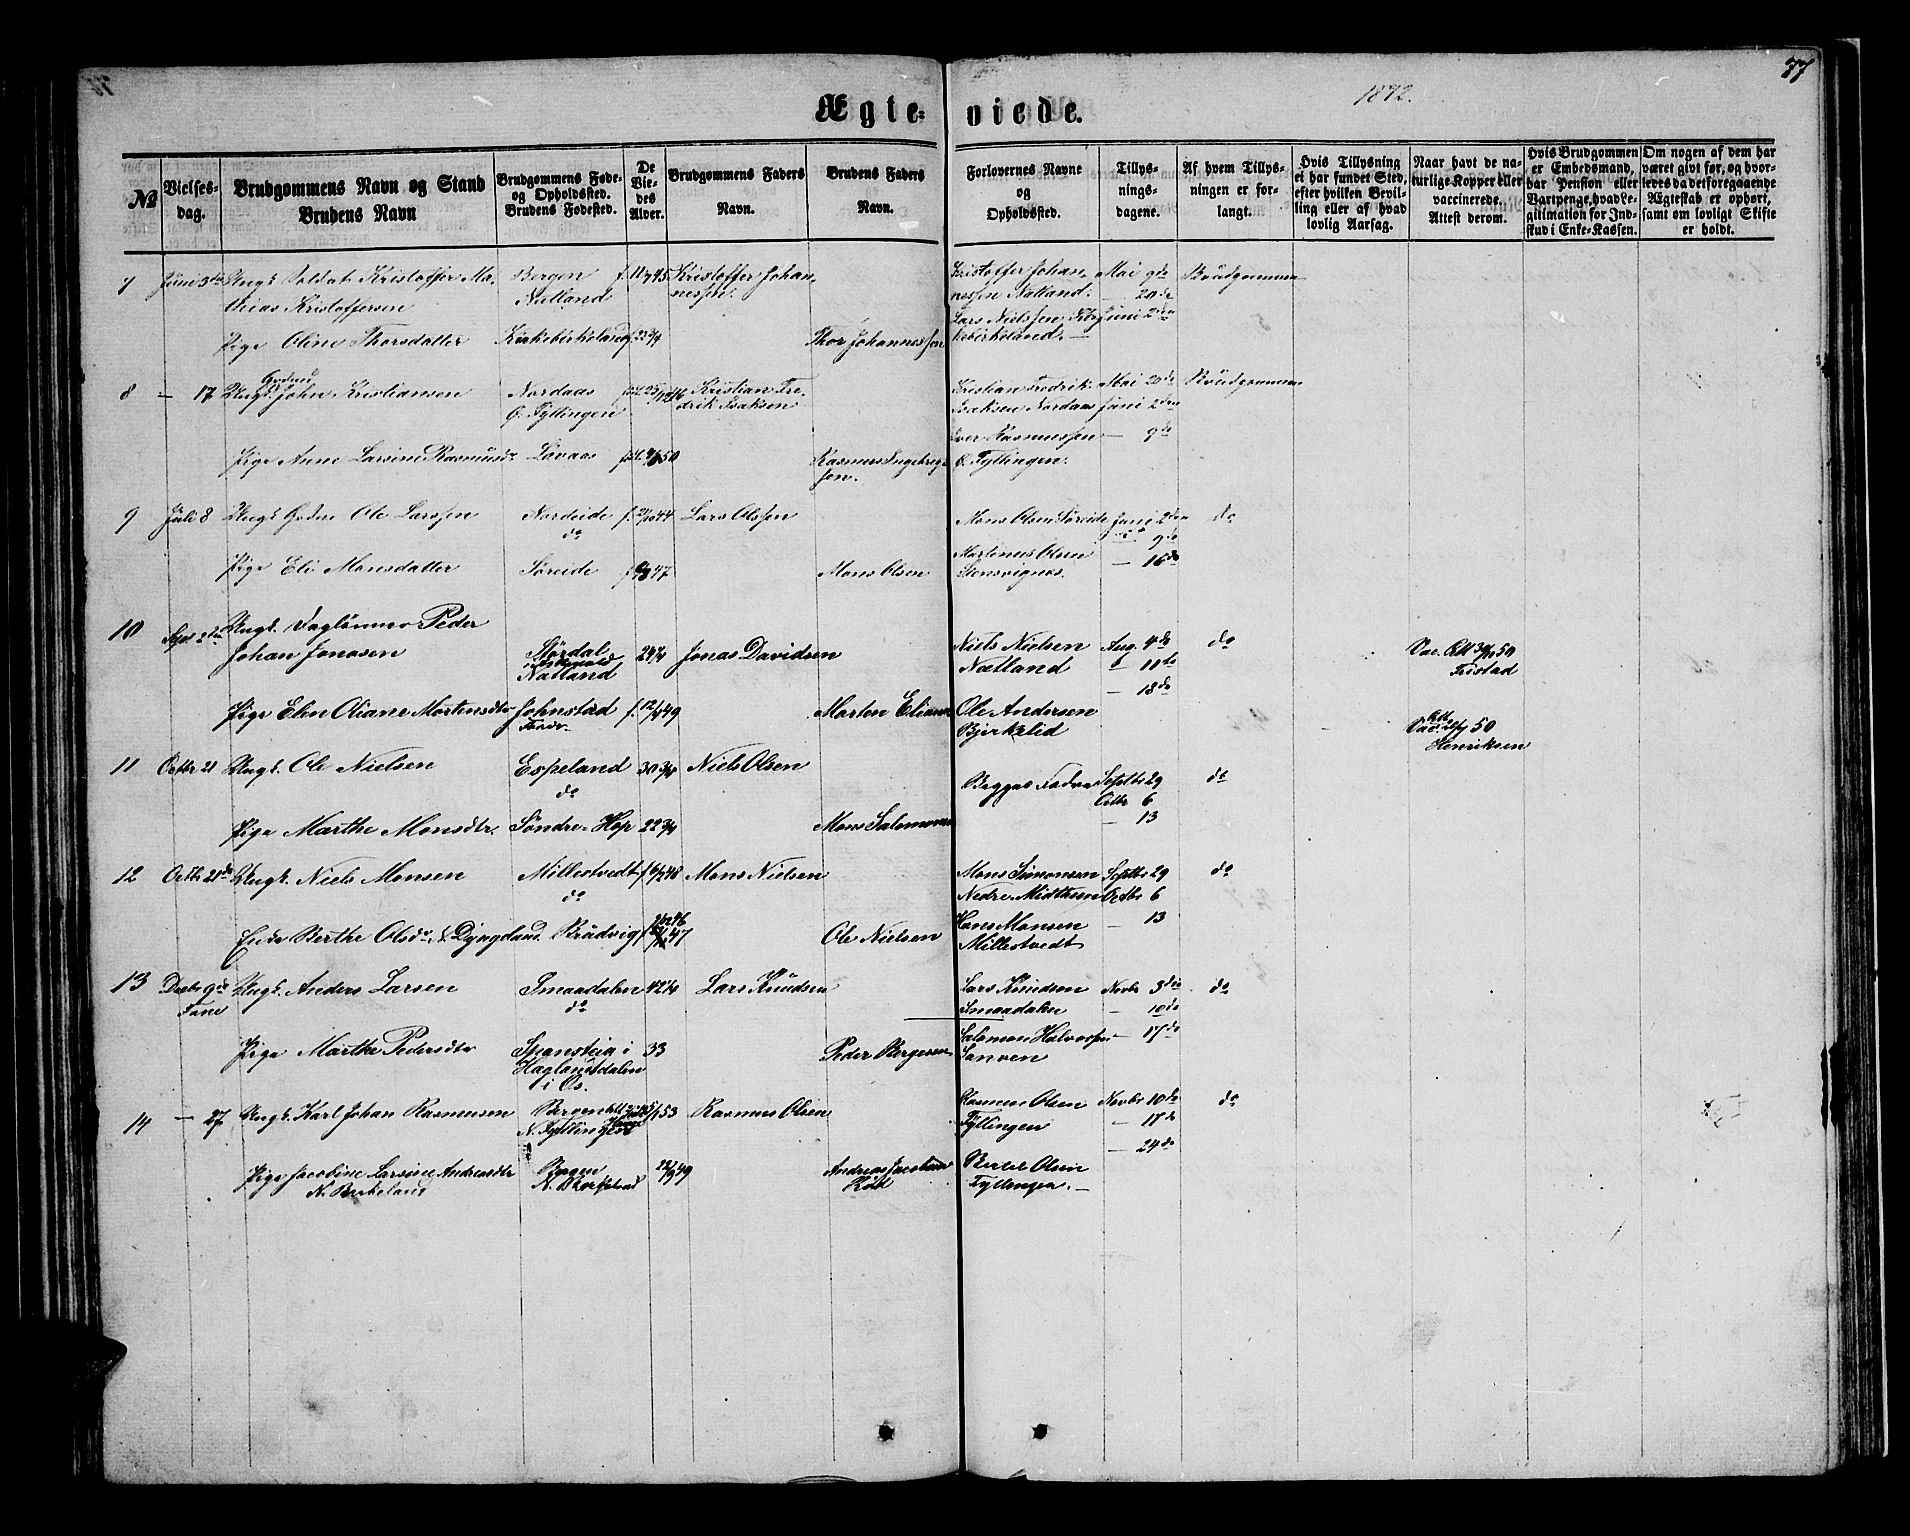 77
1872.
Ægte- viede.
№
Vielses-
dag.
Brudgommens Navn og Stand
Brudens Navn
Brudgommens Føde-
og Opholdssted.
Brudens Fødested.
De
Vie-
des
Alder.
Brudgommens Faders
Navn.
Brudens Faders
Navn.
Forlovernes Navne
og
Opholdssted.
Tillys-
nings-
dagene.
Af hvem Tillys-
ningen er for-
langt.
Hvis Tillysning
ei har fundet Sted,
efter hvilken Bevil-
ling eller af hvad
lovlig Aarsag.
Naar havt de na-
turlige Kopper eller
vaccinerede.
Attest derom.
Hvis Brudgommen
er Embedsmand,
har Pension eller
Vartpenge, hvad Le-
gitimation for Ind-
skud i Enke-Kassen.
Om nogen af dem har
været givt før, og hvor-
ledes da det foregaaende
Ægteskab er ophørt,
samt om lovligt Skifte
er holdt.
7 Juni 3die Ungk. Soldat Kristoffer Ma- Bergen Kristoffer Johan- Kristoffer Johan- Mai 9de Brudgommen
thias Kristoffersen Natland nessen. nessen Natland. — 20de
Lars Nielssen Juni 2den
Pige Oline Thorsdatter Kirkebirkeland 23 3/4 Thor Johannessen kebirkeland.
8 — 17 Ungk. John Kristiansen Nordaas Kristian Fre- Kristian Fredrik Mai 20de Brudgommen
Ø. Fyllingen drik Isaksen Isaksen Nordaas Juni 2den
Iver Rasmussen — 9de
Pige Anne Larsine Rasmusdr Løvaas 50 Rasmus Ingebrigt- Ø. Fyllingen.
sen.
9 Juli 8 Ungk. Ole Larssen Nordeide 44 Lars Olssen Mons Olsen Søreide Juni 2den do
do — 9de
Martinus Olsen
Pige Eli Monsdatter Søreide 47 Mons Olsen Stensvignes. — 16de
10 Sept 2den Ungk. Daglønner Peder
Johan Jonasen Størdal 24 1/4 Jonas Davidsen Niels Nielsen Aug. 4de do Vac. Att 50
Natland Natland — 11te
— 18de
Pige Elen Oliane Mortensdtr Johnstad 49 Morten Eliasen Ole Andersen
Bjerkelid Vac. Att 50
Henriksen
11 Octbr 21 Ungk. Ole Nielsen Espeland 30 3/4 Niels Olsen Begges Fædre Septbr 29 do
do Octbr 6
Pige Marthe Monsdtr. Søndre-Hop 22 3/4 Mons Salomonsen — 13
12 Octbr 21de Ungk. Niels Monsen Millestvedt 48 Mons Nielsen Mons Simonsen Septbr 29 do
do Nedre Midthun Octbr 6
Enke Berthe Olsdr N. Dyngeland Brudvig 47 Ole Nielsen Hans Monsen — 13
Millestvedt
13 Decbr 9de Ungk. Anders Larsen Smaadalen 42 1/4 Lars Knudsen Lars Knudsen Novbr 3die do
Fane do Smaadalen — 10de
Salomon Halvorsen — 17de
Pige Marthe Pedersdtr i 33 Peder Børgesen Sanven
Haglandsdalen
i Os.
14 — 27 Ungk. Karl Johan Rasmusen Bergen 53 Rasmus Olsen Rasmus Olsen Novbr 10de do
N. Fyllingen Fyllingen — 17de
— 24de
Pige Jacobine Larsine Andreasdtr Bergen 49 Andreas Jacobsen Olsen
N. Birkeland Fyllingen.